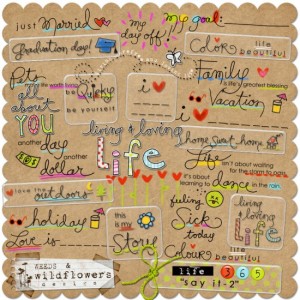 just Married
my day off!
my goal:
Graduation day!
Color
life beautiful
Pets
Quirky
be yourself
i
Family
life's greatest blessing
i
Vacation
all about
YOU
living & loving
Life
home sweet home
another day
another
dollar
Life
isn't about waiting
for the storm to pass
it's about learning to dance in the rain
love the outdoors
feeling
Sick
today
living & loving
Life
holiday
this is my
Story
Love is
Colour
life beautiful
WEEDS &
wildflowers
life 365
"say it-2"